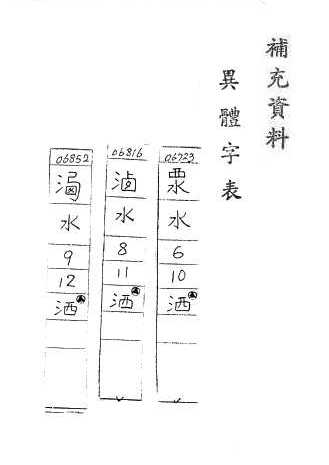 補充資料
異體字表
06723
水
6
10
洒
06816
水
8
11
洒
06852
水
9
12
洒